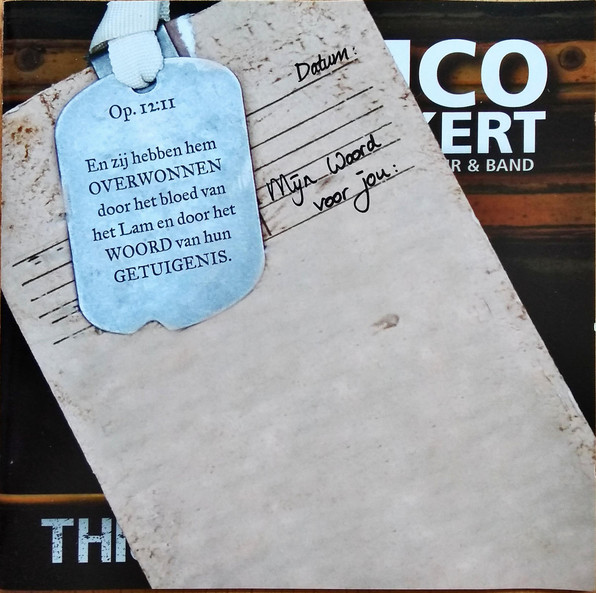 Op. 12:11
En zij hebben hem
OVERWONNEN
door het bloed van
het Lam en door het
WOORD van hun
GETUIGENIS.
Datum:
Mijn Woord
voor jou:
ICO
KERT
R & BAND
TH